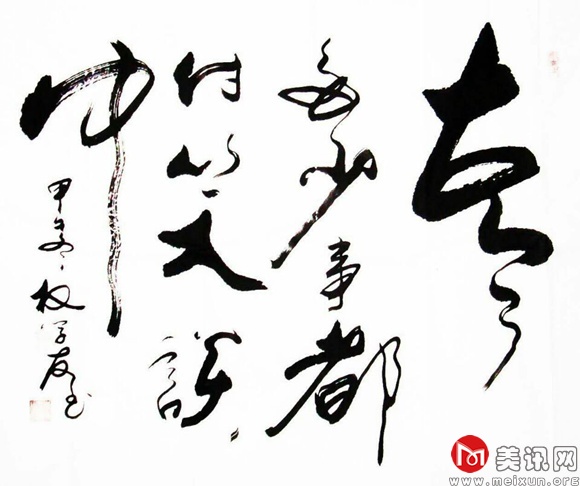 古今
多少事都
付笑談
中
甲午 学友书
美讯网
www.meixun.org